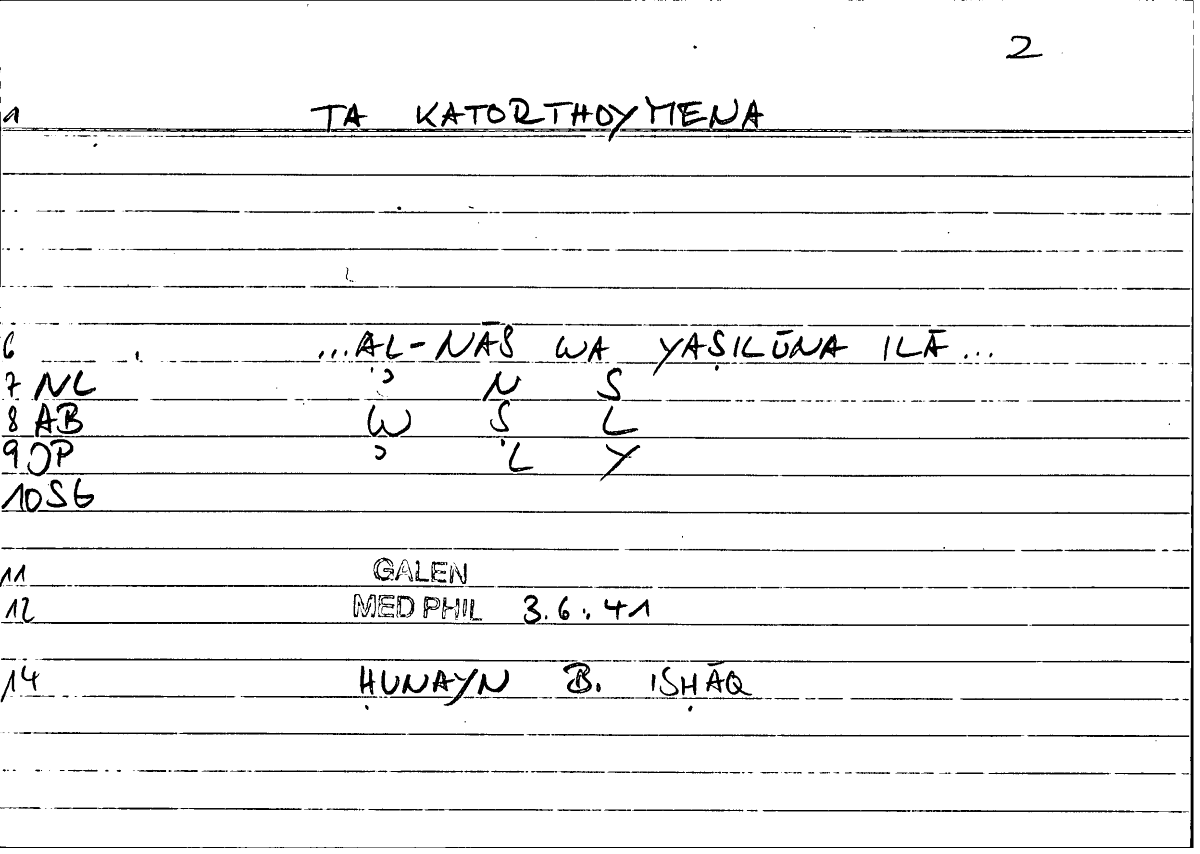 2
1 TA KATORTHOYMENA
6 ...AL-NĀS WA YAṢILŪNA ILĀ...
7 NL ʾ N S
8 AB W Ṣ L
9 OP ʾ L Y
10 SG
11 GALEN
12 MED PHIL 3.6:41
14 ḤUNAYN B. ISḤĀQ